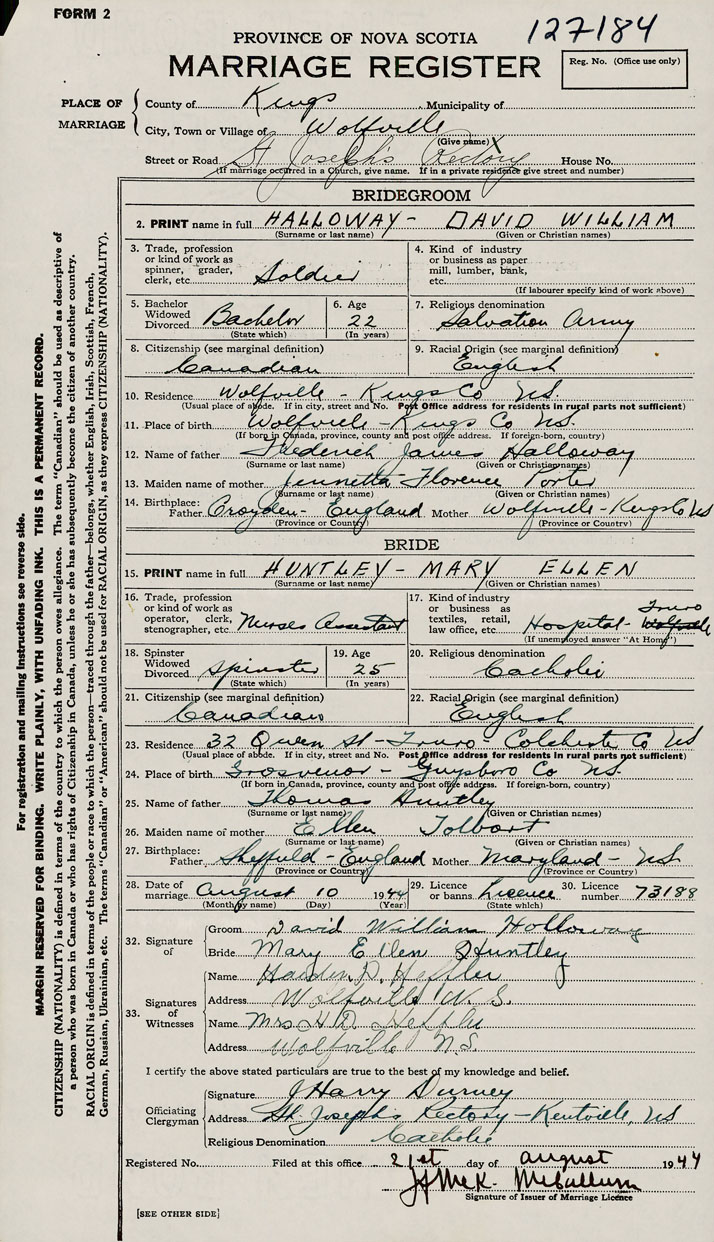 FORM 2
127184
PROVINCE OF NOVA SCOTIA
MARRIAGE REGISTER
Reg. No. (Office use only)
PLACE OF MARRIAGE
County of Kings Municipality of
City, Town or Village of Wolfville
(Give name) X
Street or Road St Joseph's Rectory House No.
(If marriage occurred in a Church, give name. If in a private residence give street and number)
BRIDEGROOM
2. PRINT name in full HALLOWAY - DAVID WILLIAM
(Surname or last name) (Given or Christian names)
3. Trade, profession or kind of work as spinner, grader, clerk, etc. Soldier
4. Kind of industry or business as paper mill, lumber, bank, etc.
(If labourer specify kind of work above)
5. Bachelor Widowed Divorced Bachelor (State which)
6. Age 22 (In years)
7. Religious denomination Salvation Army
8. Citizenship (see marginal definition) Canadian
9. Racial Origin (see marginal definition) English
10. Residence Wolfville - Kings Co NS.
(Usual place of abode. If in city, street and No. Post Office address for residents in rural parts not sufficient)
11. Place of birth Wolfville - Kings Co NS.
(If born in Canada, province, county and post office address. If foreign-born, country)
12. Name of father Frederick James Halloway
(Surname or last name) (Given or Christian names)
13. Maiden name of mother Jennetta Florence Porter
(Surname or last name) (Given or Christian names)
14. Birthplace: Father Croyden - England Mother Wolfville - Kings Co NS
(Province or Country) (Province or Country)
BRIDE
15. PRINT name in full HUNTLEY - MARY ELLEN
(Surname or last name) (Given or Christian names)
16. Trade, profession or kind of work as operator, clerk, stenographer, etc. Nurses Assistant
17. Kind of industry or business as textiles, retail, law office, etc. Hospital - Truro Wolfville
(If unemployed answer "At Home")
18. Spinster Widowed Divorced Spinster (State which)
19. Age 25 (In years)
20. Religious denomination Catholic
21. Citizenship (see marginal definition) Canadian
22. Racial Origin (see marginal definition) English
23. Residence 32 Queen St - Truro Colchester Co NS
(Usual place of abode. If in city, street and No. Post Office address for residents in rural parts not sufficient)
24. Place of birth Grosvenor - Guysboro Co NS.
(If born in Canada, province, county and post office address. If foreign-born, country)
25. Name of father Thomas Huntley
(Surname or last name) (Given or Christian names)
26. Maiden name of mother Ellen Tolbart
(Surname or last name) (Given or Christian names)
27. Birthplace: Father Sheffuld - England Mother Maryland - NS
(Province or Country) (Province or Country)
28. Date of marriage August 10 1944
(Month by name) (Day) (Year)
29. Licence or banns Licence (State which)
30. Licence number 73188
32. Signature of
Groom David William Holloway
Bride Mary Ellen Huntley
33. Signatures of Witnesses
Name Haiden D. Heffler
Address Wolfville N.S.
Name Mrs H D Heffler
Address Wolfville N.S.
I certify the above stated particulars are true to the best of my knowledge and belief.
Officiating Clergyman
Signature J Harry Durney
Address St. Joseph's Rectory - Kentville, NS
Religious Denomination Catholic
Registered No. Filed at this office 21st day of August 1944
J McK. McCallum
Signature of Issuer of Marriage Licence
[SEE OTHER SIDE]
For registration and mailing instructions see reverse side.
MARGIN RESERVED FOR BINDING. WRITE PLAINLY, WITH UNFADING INK. THIS IS A PERMANENT RECORD.
CITIZENSHIP (NATIONALITY) is defined in terms of the country to which the person owes allegiance. The term "Canadian" should be used as descriptive of
a person who was born in Canada or who has rights of Citizenship in Canada, unless he or she has subsequently become the citizen of another country.
RACIAL ORIGIN is defined in terms of the people or race to which the person—traced through the father—belongs, whether English, Irish, Scottish, French,
German, Russian, Ukrainian, etc. The terms "Canadian" or "American" should not be used for RACIAL ORIGIN, as they express CITIZENSHIP (NATIONALITY).